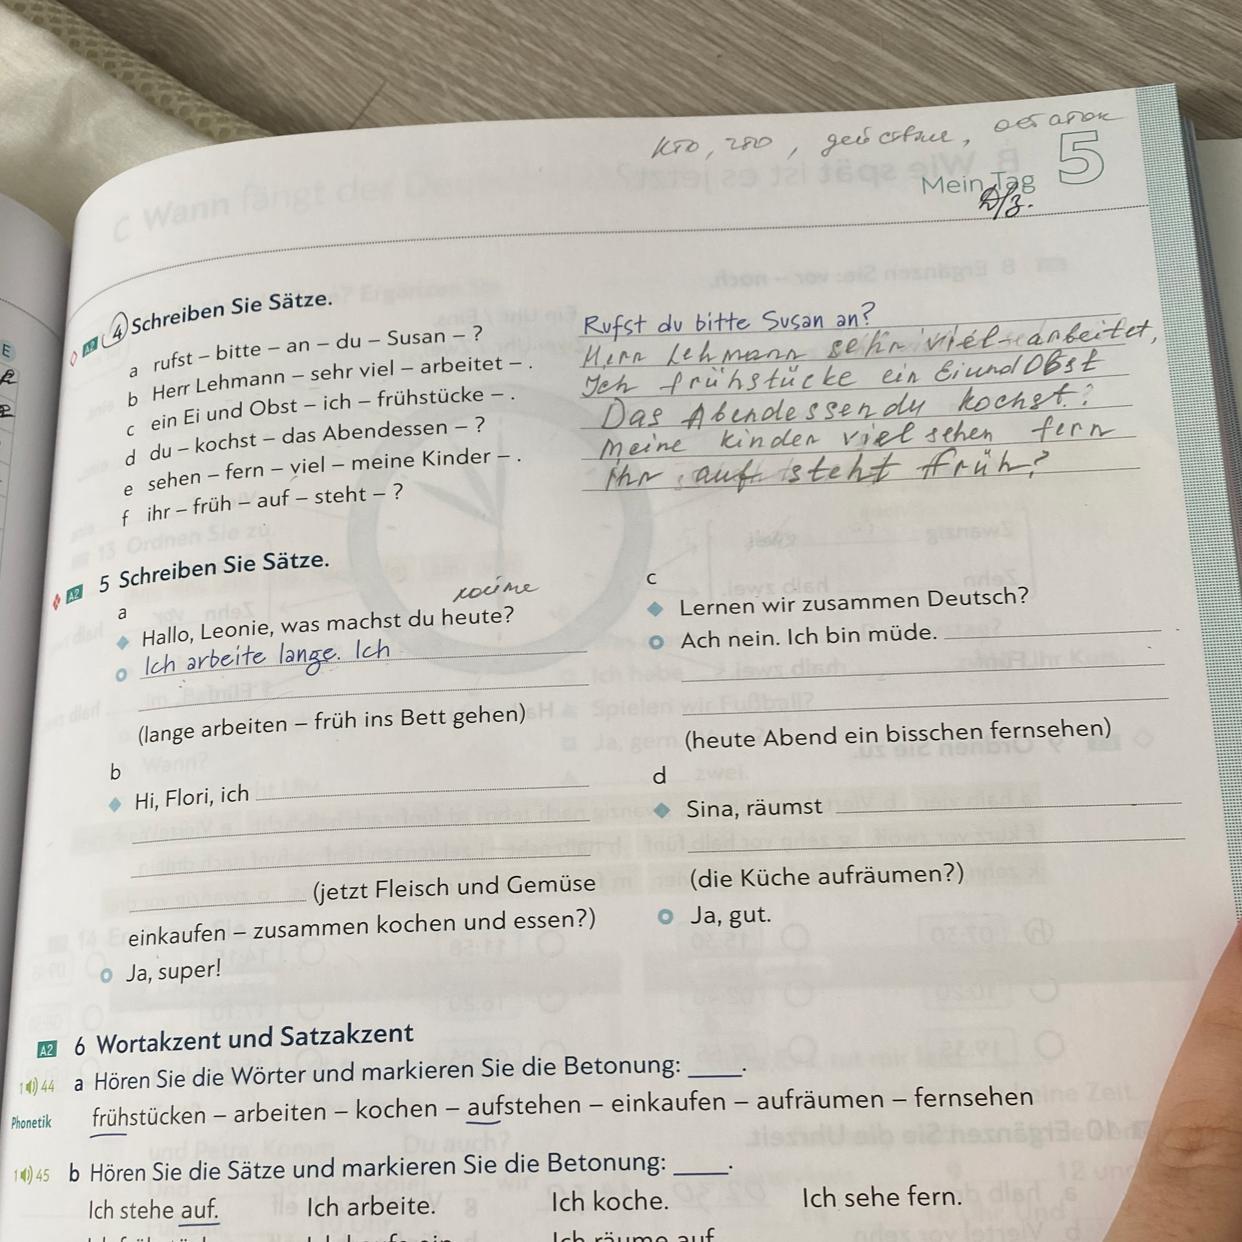 Mein Tag
5
D/z.
4 Schreiben Sie Sätze.
a rufst – bitte – an – du – Susan – ?
b Herr Lehmann – sehr viel – arbeitet – .
c ein Ei und Obst – ich – frühstücke – .
d du – kochst – das Abendessen – ?
e sehen – fern – viel – meine Kinder – .
f ihr – früh – auf – steht – ?
Rufst du bitte Susan an?
Herr Lehmann sehr viel arbeitet,
Ich frühstücke ein Ei und Obst
Das Abendessen du kochst?
Meine kinder viel sehen fern
Ihr auf steht früh?
A2 5 Schreiben Sie Sätze.
a
Hallo, Leonie, was machst du heute?
Ich arbeite lange. Ich
(lange arbeiten – früh ins Bett gehen)
b
Hi, Flori, ich
(jetzt Fleisch und Gemüse
einkaufen – zusammen kochen und essen?)
Ja, super!
c
Lernen wir zusammen Deutsch?
Ach nein. Ich bin müde.
(heute Abend ein bisschen fernsehen)
d
Sina, räumst
(die Küche aufräumen?)
Ja, gut.
A2 6 Wortakzent und Satzakzent
1 44 a Hören Sie die Wörter und markieren Sie die Betonung: ____.
Phonetik frühstücken – arbeiten – kochen – aufstehen – einkaufen – aufräumen – fernsehen
1 45 b Hören Sie die Sätze und markieren Sie die Betonung: ____.
Ich stehe auf. Ich arbeite. Ich koche. Ich sehe fern.
Ich räume auf.